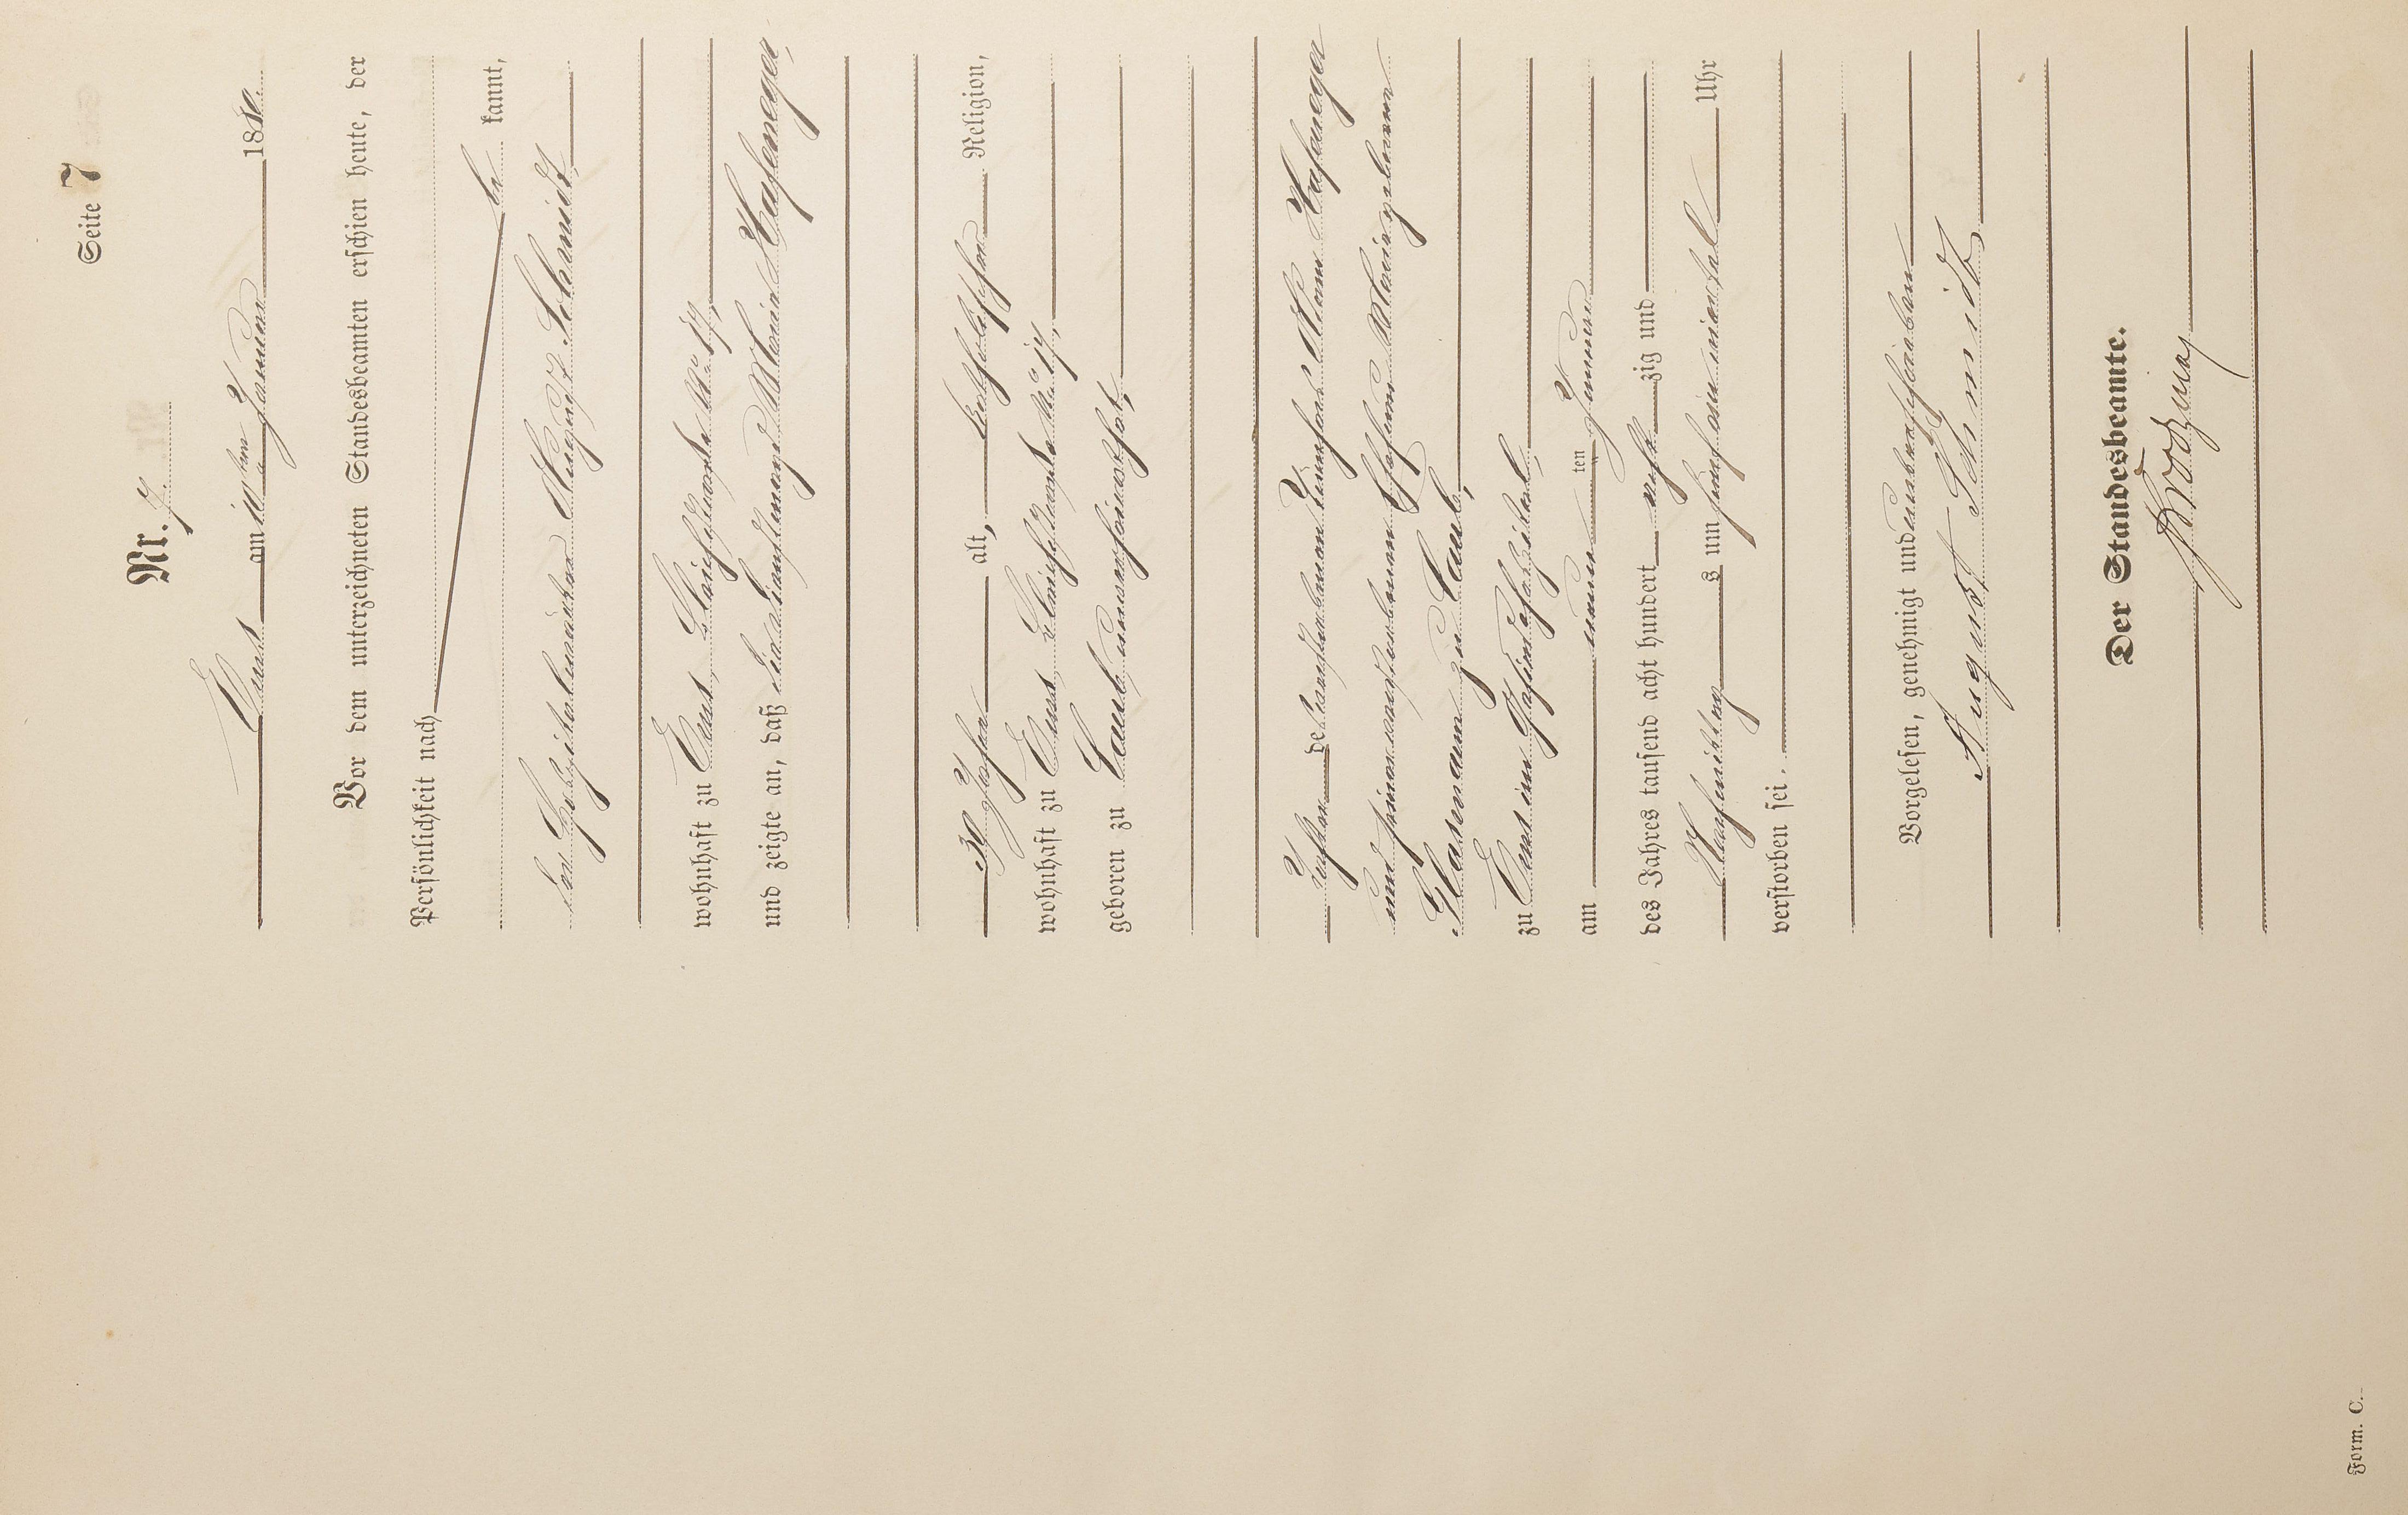 Seite 7
Nr. 7.
Ems am 10ten Januar 1880.
Vor dem unterzeichneten Standesbeamten erschien heute, der
Persönlichkeit nach
be kannt,
der Spezialaufseher August Schmidt
wohnhaft zu Ems, Bleichstraße No 17,
und zeigte an, daß die Dienstmagd Maria Haseneger,
39 Jahre alt, katholischer Religion,
wohnhaft zu Ems, Bleichstraße No 17,
geboren zu Caub, unverheirathet,
Tochter des verstorbenen Haseneger
und seiner verstorbenen Ehefrau Maria geborenen
zu Caub,
zu Ems im
am neun ten Januar
des Jahres tausend acht hundert acht zig und
Nachmittags um fünf ein viertel Uhr
verstorben sei.
Vorgelesen, genehmigt und unterschrieben
August Schmidt
Der Standesbeamte.
Form. C.